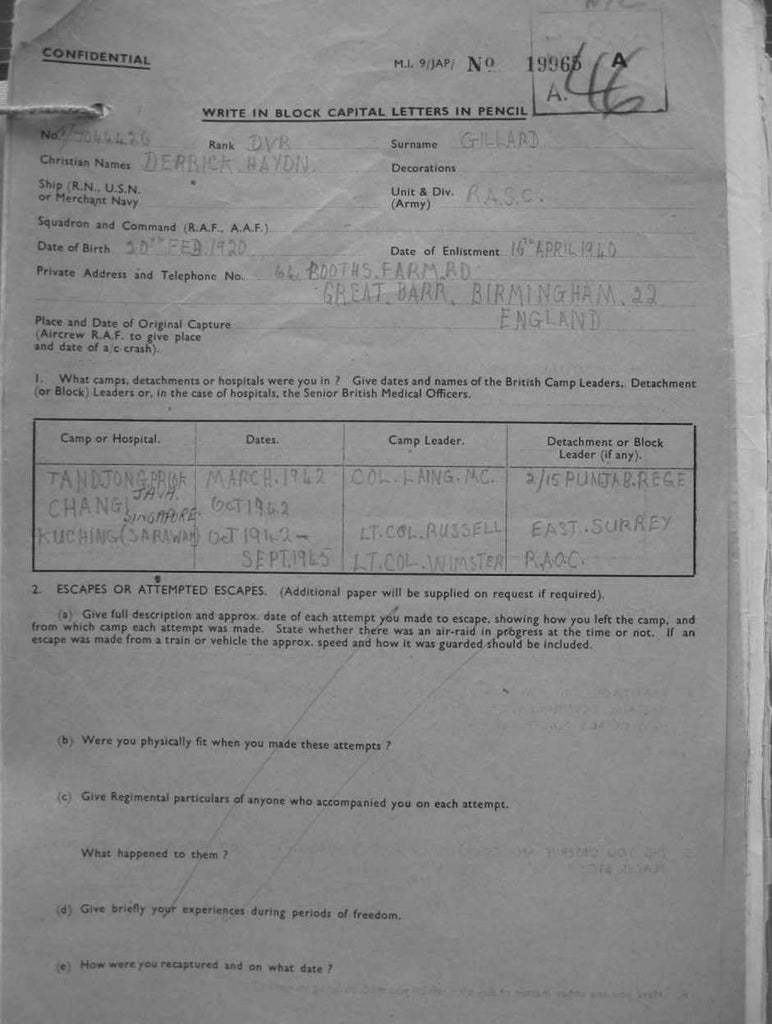 CONFIDENTIAL
M.I. 9/JAP/ No 19965 A
A. 46
WRITE IN BLOCK CAPITAL LETTERS IN PENCIL
No. Rank DVR Surname GILLARD
Christian Names DERRICK HAYDN. Decorations
Ship (R.N., U.S.N. or Merchant Navy
Unit & Div. (Army) R.A.S.C.
Squadron and Command (R.A.F., A.A.F.)
Date of Birth FEB. 1920 Date of Enlistment 16TH APRIL 1940
Private Address and Telephone No. BOOTHS. FARM. RD
GREAT. BARR. BIRMINGHAM. 22
ENGLAND
Place and Date of Original Capture
(Aircrew R.A.F. to give place
and date of a/c crash).
1. What camps, detachments or hospitals were you in ? Give dates and names of the British Camp Leaders, Detachment
(or Block) Leaders or, in the case of hospitals, the Senior British Medical Officers.
Camp or Hospital. Dates. Camp Leader. Detachment or Block
Leader (if any).
TANDJONGPRIOK MARCH. 1942 COL. LAING. MC. 2/15 PUNJAB. REGE
JAVA.
CHANGI SINGAPORE. OCT 1942
KUCHING (SARAWAK) OCT 1942- LT. COL. RUSSELL EAST. SURREY
SEPT. 1945 LT. COL. WIMSTER R.A.O.C.
2. ESCAPES OR ATTEMPTED ESCAPES. (Additional paper will be supplied on request if required).
(a) Give full description and approx. date of each attempt you made to escape, showing how you left the camp, and
from which camp each attempt was made. State whether there was an air-raid in progress at the time or not. If an
escape was made from a train or vehicle the approx. speed and how it was guarded should be included.
(b) Were you physically fit when you made these attempts ?
(c) Give Regimental particulars of anyone who accompanied you on each attempt.
What happened to them ?
(d) Give briefly your experiences during periods of freedom.
(e) How were you recaptured and on what date ?